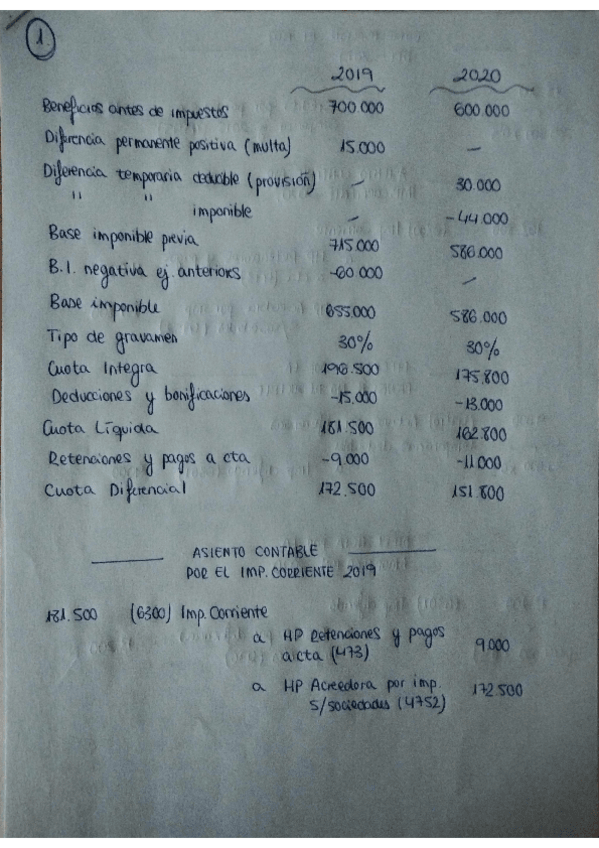 1.
2019 2020
Beneficios antes de impuestos 700.000 600.000
Diferencia permanente positiva (multa) 15.000 —
Diferencia temporaria deducible (provisión) — 30.000
" " imponible — -44.000
Base imponible previa 715.000 586.000
B.I. negativa ej. anteriores -60.000 —
Base imponible 655.000 586.000
Tipo de gravamen 30% 30%
Cuota Integra 196.500 175.800
Deducciones y bonificaciones -15.000 -13.000
Cuota Líquida 181.500 162.800
Retenciones y pagos a cta -9.000 -11.000
Cuota Diferencial 172.500 151.800
ASIENTO CONTABLE
POR EL IMP. CORRIENTE 2019
181.500 (6300) Imp. Corriente
a HP Retenciones y pagos
a cta (473) 9.000
a HP Acreedora por imp. 172.500
s/sociedades (4752)